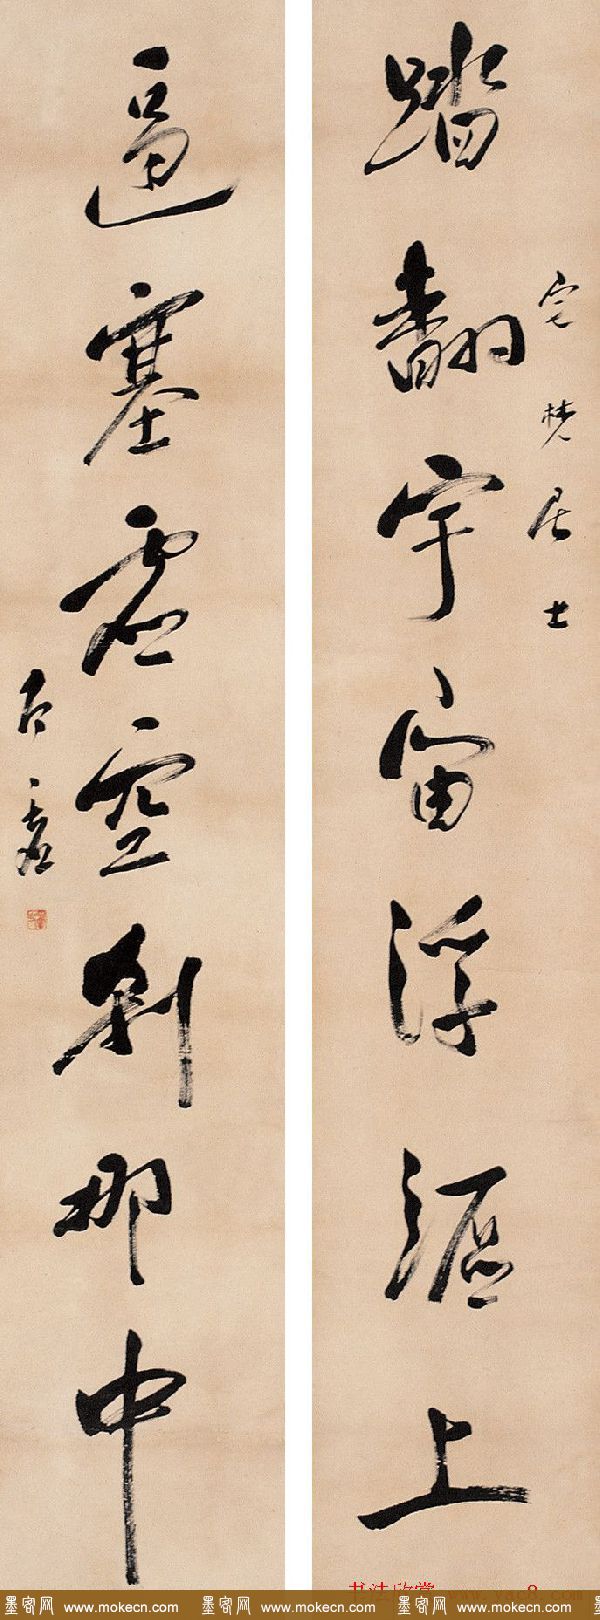 踏翻宇宙浮漚上
宅梵居士
逼塞虚空刹那中
墨客网 www.mokecn.com 墨客网 www.mokecn.com 墨客网 www.mokecn.com